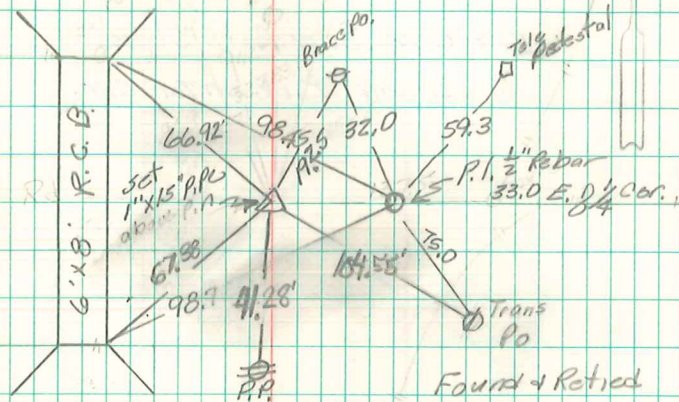 Brace Po.
Tele
Pedestal
66.92'
98.
45.5
32.0
59.3
6'x8' R.C.B.
Set
1"x15" P.
above P.
P.I. 1/2" Rebar
33.0 E. of 1/4 Cor.
67.98
98.7
41.28'
104.55'
75.0
Trans
Po
P.P.
Found & Retied